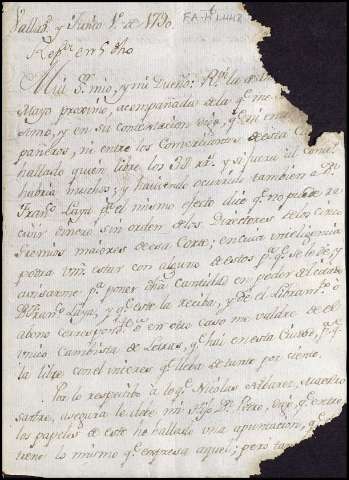 Vallad. y Junio 1º de 1790.
FA-
en 5 dho
Mui Sr. mio, y mi Dueño: Rvi la de
Mayo proximo, acompañada de la qe me
timo, y en su contestacion digo, qe ni en
pañeros, ni entre los Comerciantes de esta Ciu
hallado quien libre los 38 rs. y si fuera al
hubria muchos; y haviendo ocurrido tambien a Dn
Franco Laya pa el mismo efecto dice qe no puede re
civir dinero sin orden de los Directores de los cinco
Gremios maiores de esa Corte, en cuia inteligencia
podra Vm estar con alguno de estos pa qe se le dé, y
avisarme pa poner dha cantidad en poder del
Dn Franco Laya, y qe este la reciba, y dé el Libramto ó
abono correspondte ó en otro caso me valdre de el
unico Cambista de Letras, qe hai en esta Ciudad, pa qe
la libre con el interes qe lleba de tanto por ciento.
Por lo respectivo à lo qe Nicolas Alvarez, Maestro
sastre, asegura le debe mi Hijo Dn Pedro, digo qe entre
los papeles de este he hallado una apuntacion, qe
tiene lo mismo qe expresa aquel; pero